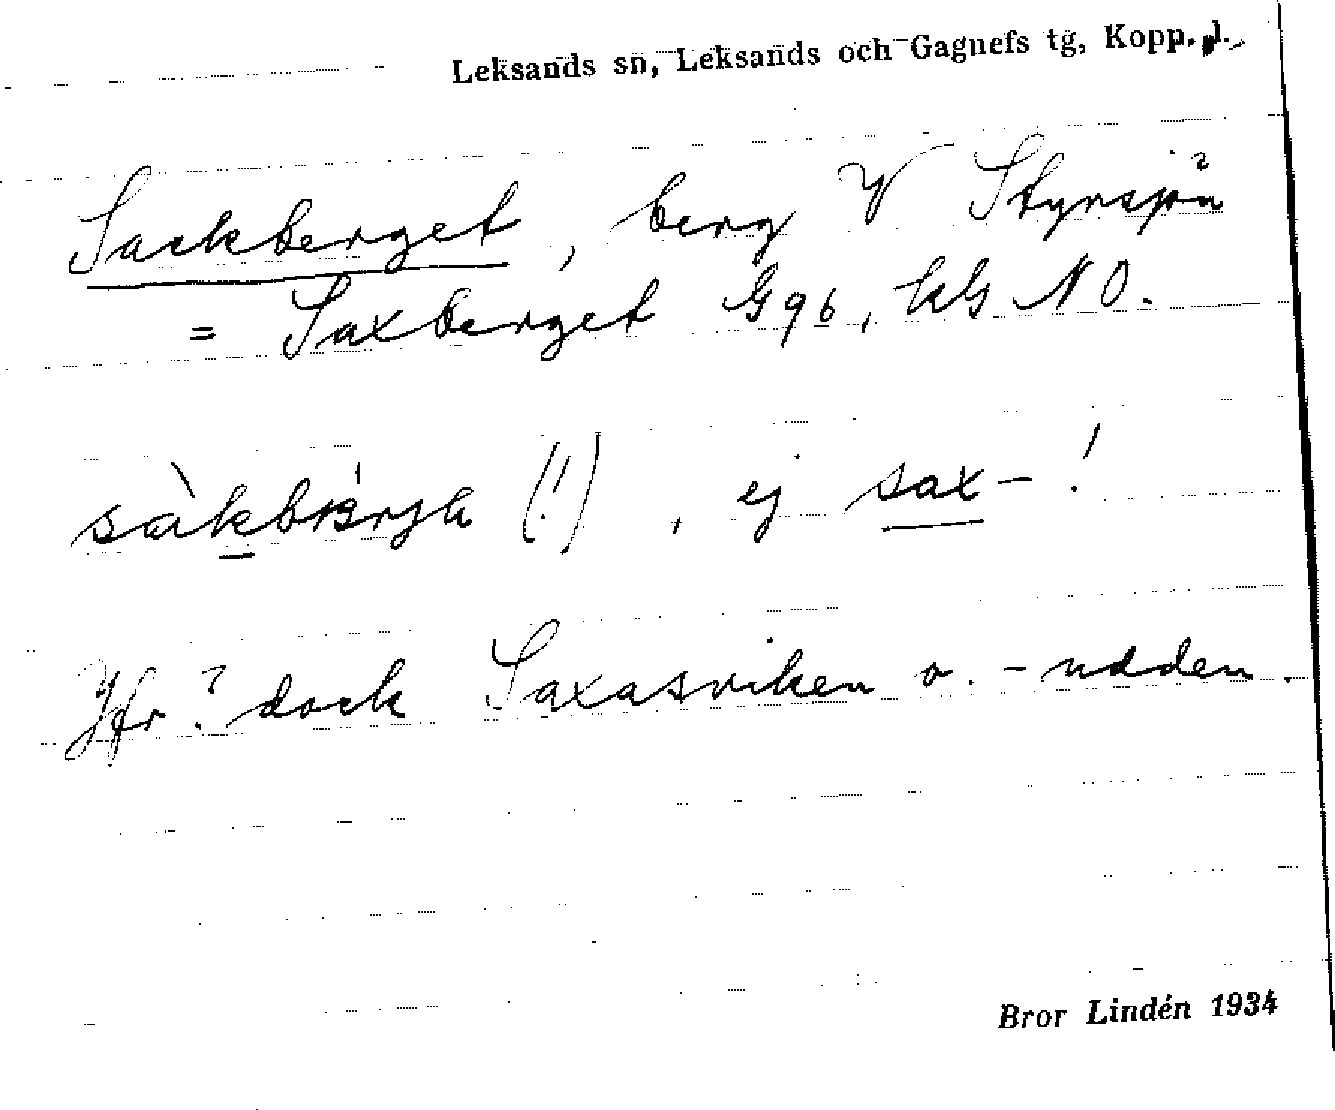 Leksands sn, Leksands och Gagnefs tg, Kopp. l.
Sackberget, berg V Styrsjön
= Saxberget G 96, kG NO.
(!), ej sax- !
Jfr ? dock Saxasviken o. -udden.
Bror Lindén 1934